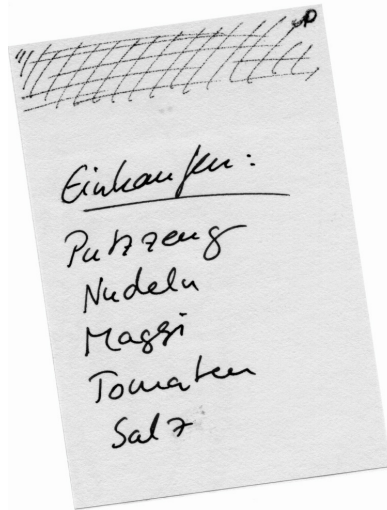 Einkaufen:
Putzzeug
Nudeln
Maggi
Tomaten
Salz